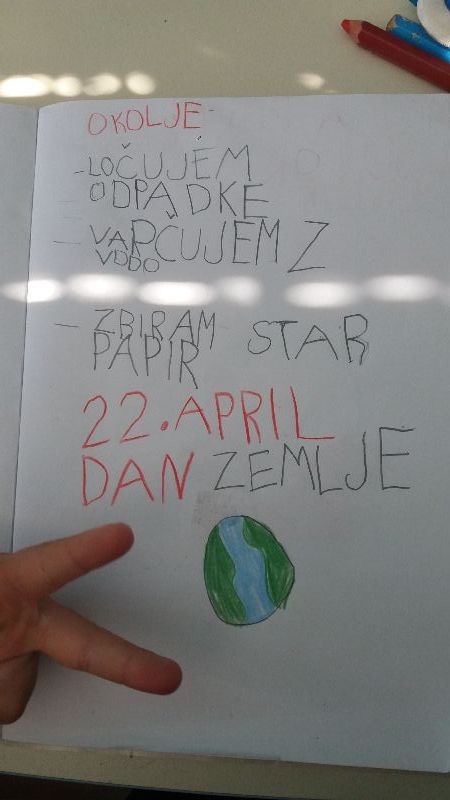 OKOLJE
- LOČUJEM
ODPADKE
- VARČUJEM Z
VODO
- ZBIRAM STAR
PAPIR
22. APRIL
DAN ZEMLJE